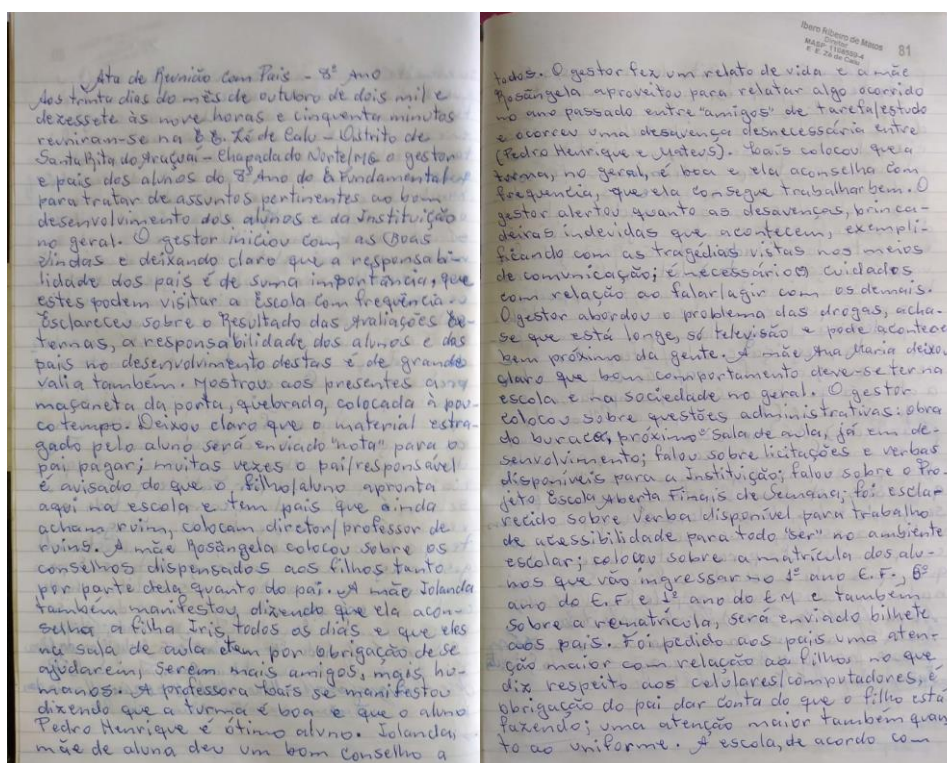 Ata de Reunião com Pais - 8º Ano
Aos trinta dias do mês de outubro de dois mil e
dezessete às nove horas e cinquenta minutos
reuniram-se na E.E. Zé de Calu - Distrito de
Santa Rita do Araçuaí - Chapada do Norte/MG o gestor
e pais dos alunos do 8º Ano do E Fundamental
para tratar de assuntos pertinentes ao bom
desenvolvimento dos alunos e da Instituição
no geral. O gestor iniciou com as Boas
Vindas e deixando claro que a responsabi-
lidade dos pais é de suma importância, que
estes podem visitar a Escola com frequência.
Esclareceu sobre o Resultado das Avaliações Ex-
ternas, a responsabilidade dos alunos e dos
pais no desenvolvimento destas é de grande
valia também. Mostrou aos presentes a
maçaneta da porta, quebrada, colocada à pou-
co tempo. Deixou claro que o material estra-
gado pelo aluno será enviado "nota" para o
pai pagar; muitas vezes o pai/responsável
é avisado do que o filho/aluno apronta
aqui na escola e tem pais que ainda
acham ruim, colocam diretor/professor de
ruins. A mãe Rosângela colocou sobre os
conselhos dispensados aos filhos tanto
por parte dela quanto do pai. A mãe Iolanda
também manifestou, dizendo que ela acon-
selha a filha Iris todos os dias e que eles
na sala de aula tem por obrigação de se
ajudarem, serem mais amigos, mais hu-
manos. A professora Laís se manifestou
dizendo que a turma é boa e que o aluno
Pedro Henrique é ótimo aluno. Iolanda,
mãe de aluna deu um bom conselho a
Ibero Ribeiro de Matos
Diretor
MASP
E. E. Zé de Calu
81
todos. O gestor fez um relato de vida e a mãe
Rosângela aproveitou para relatar algo ocorrido
no ano passado entre "amigos" de tarefa/estudo
e ocorreu uma desavença desnecessária entre
(Pedro Henrique e Mateus). Laís colocou que a
turma, no geral, é boa e ela aconselha com
frequencia, que ela consegue trabalhar bem. O
gestor alertou quanto as desavenças, brinca-
deiras indevidas que acontecem, exempli-
ficando com as tragédias vistas nos meios
de comunicação; é necessários cuidados
com relação ao falar/agir com os demais.
O gestor abordou o problema das drogas, acha-
se que está longe, só televisão e pode acontecer
bem próximo da gente. A mãe Ana Maria deixou
claro que bom comportamento deve-se ter na
escola e na sociedade no geral. O gestor
colocou sobre questões administrativas: obra
do buraco, próximo sala de aula, já em de-
senvolvimento; falou sobre licitações e verbas
disponíveis para a Instituição; falou sobre o Pro
jeto Escola Aberta Finais de Semana; foi escla-
recido sobre verba disponível para trabalho
de acessibilidade para todo "ser" no ambiente
escolar; colocou sobre a matrícula dos alu-
nos que vão ingressar no 1º ano E.F., 6º
ano do E.F e 1º ano do EM e também
sobre a rematrícula, será enviado bilhete
aos pais. Foi pedido aos pais uma aten-
ção maior com relação ao filho, no que
diz respeito aos celulares/computadores, é
obrigação do pai dar conta do que o filho está
fazendo; uma atenção maior também quan
to ao uniforme. A escola, de acordo com